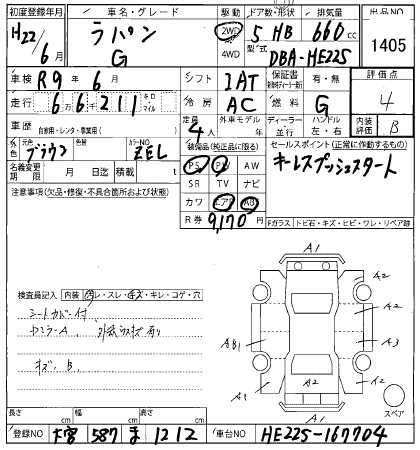 初度登録年月 車名・グレード 駆動 ドア数・形状 排気量 出品NO
H22/6月 ラパン G 2WD 4WD 5 HB 660cc 1405
型式 DBA-HE22S
車検 R9年 6月 シフト IAT 保証書 有・無 評価点 4
走行 66211 キロ マイル 冷房 AC 燃料 G
車歴 自家用・レンタ・事業用( ) 定員 4人 外車モデル 年 ディーラー 並行 ハンドル 左・右 内装評価 B
外色 元色 ブラウン 色替 カラーNO ZEL 装備品(純正品に限る) セールスポイント(正常に作動するもの)
PS PW AW キーレスプッシュスタート
名義変更期限 月 日迄 積載 t SR TV ナビ
注意事項(欠品・修復・不具合箇所および状態) カワ エアB AB
R券 9,170円 Fガラス トビ石・キズ・ヒビ・ワレ・リペア跡
A1
A2
検査員記入 内装 汚・スレ・キズ・キレ・コゲ・穴
シートカバー付
A2
AB1 A3
キズ B
A2
A1 A2
A1
スペア
長さ cm 幅 cm 高さ cm
登録NO 大宮 587 ま 1212 車台NO HE22S-167704